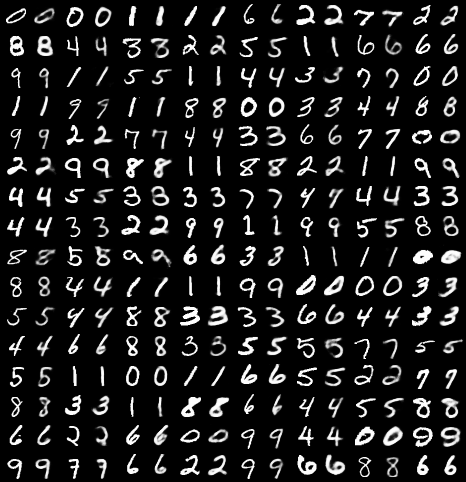 0 0 0 0 1 1 1 1 6 6 2 2 7 7 2 2
8 8 4 4 3 8 2 2 5 5 1 1 6 6 6 6
9 9 1 1 5 5 1 1 4 4 3 3 7 7 0 0
1 1 9 9 1 1 8 8 0 0 3 3 4 4 8 8
9 9 2 2 7 7 4 4 3 3 6 6 7 7 0 0
2 2 9 9 8 8 1 1 8 8 2 2 1 1 9 9
4 4 5 5 3 8 3 3 7 7 4 9 4 4 3 3
4 4 3 3 2 2 9 9 1 1 9 9 5 5 8 8
8 8 5 8 9 9 6 6 3 3 1 1 1 1 0 0
8 8 4 4 1 1 1 1 9 9 0 0 0 0 3 3
5 5 4 4 8 8 3 3 3 3 6 6 4 4 3 3
4 4 6 6 8 8 3 3 5 5 5 5 7 7 5 5
5 5 1 1 0 0 1 1 6 6 5 5 2 2 7 7
8 8 3 3 1 1 8 8 6 6 4 4 5 5 8 8
6 6 2 2 6 6 0 0 9 9 4 4 0 0 9 9
9 9 7 7 6 6 2 2 9 9 6 6 8 8 6 6